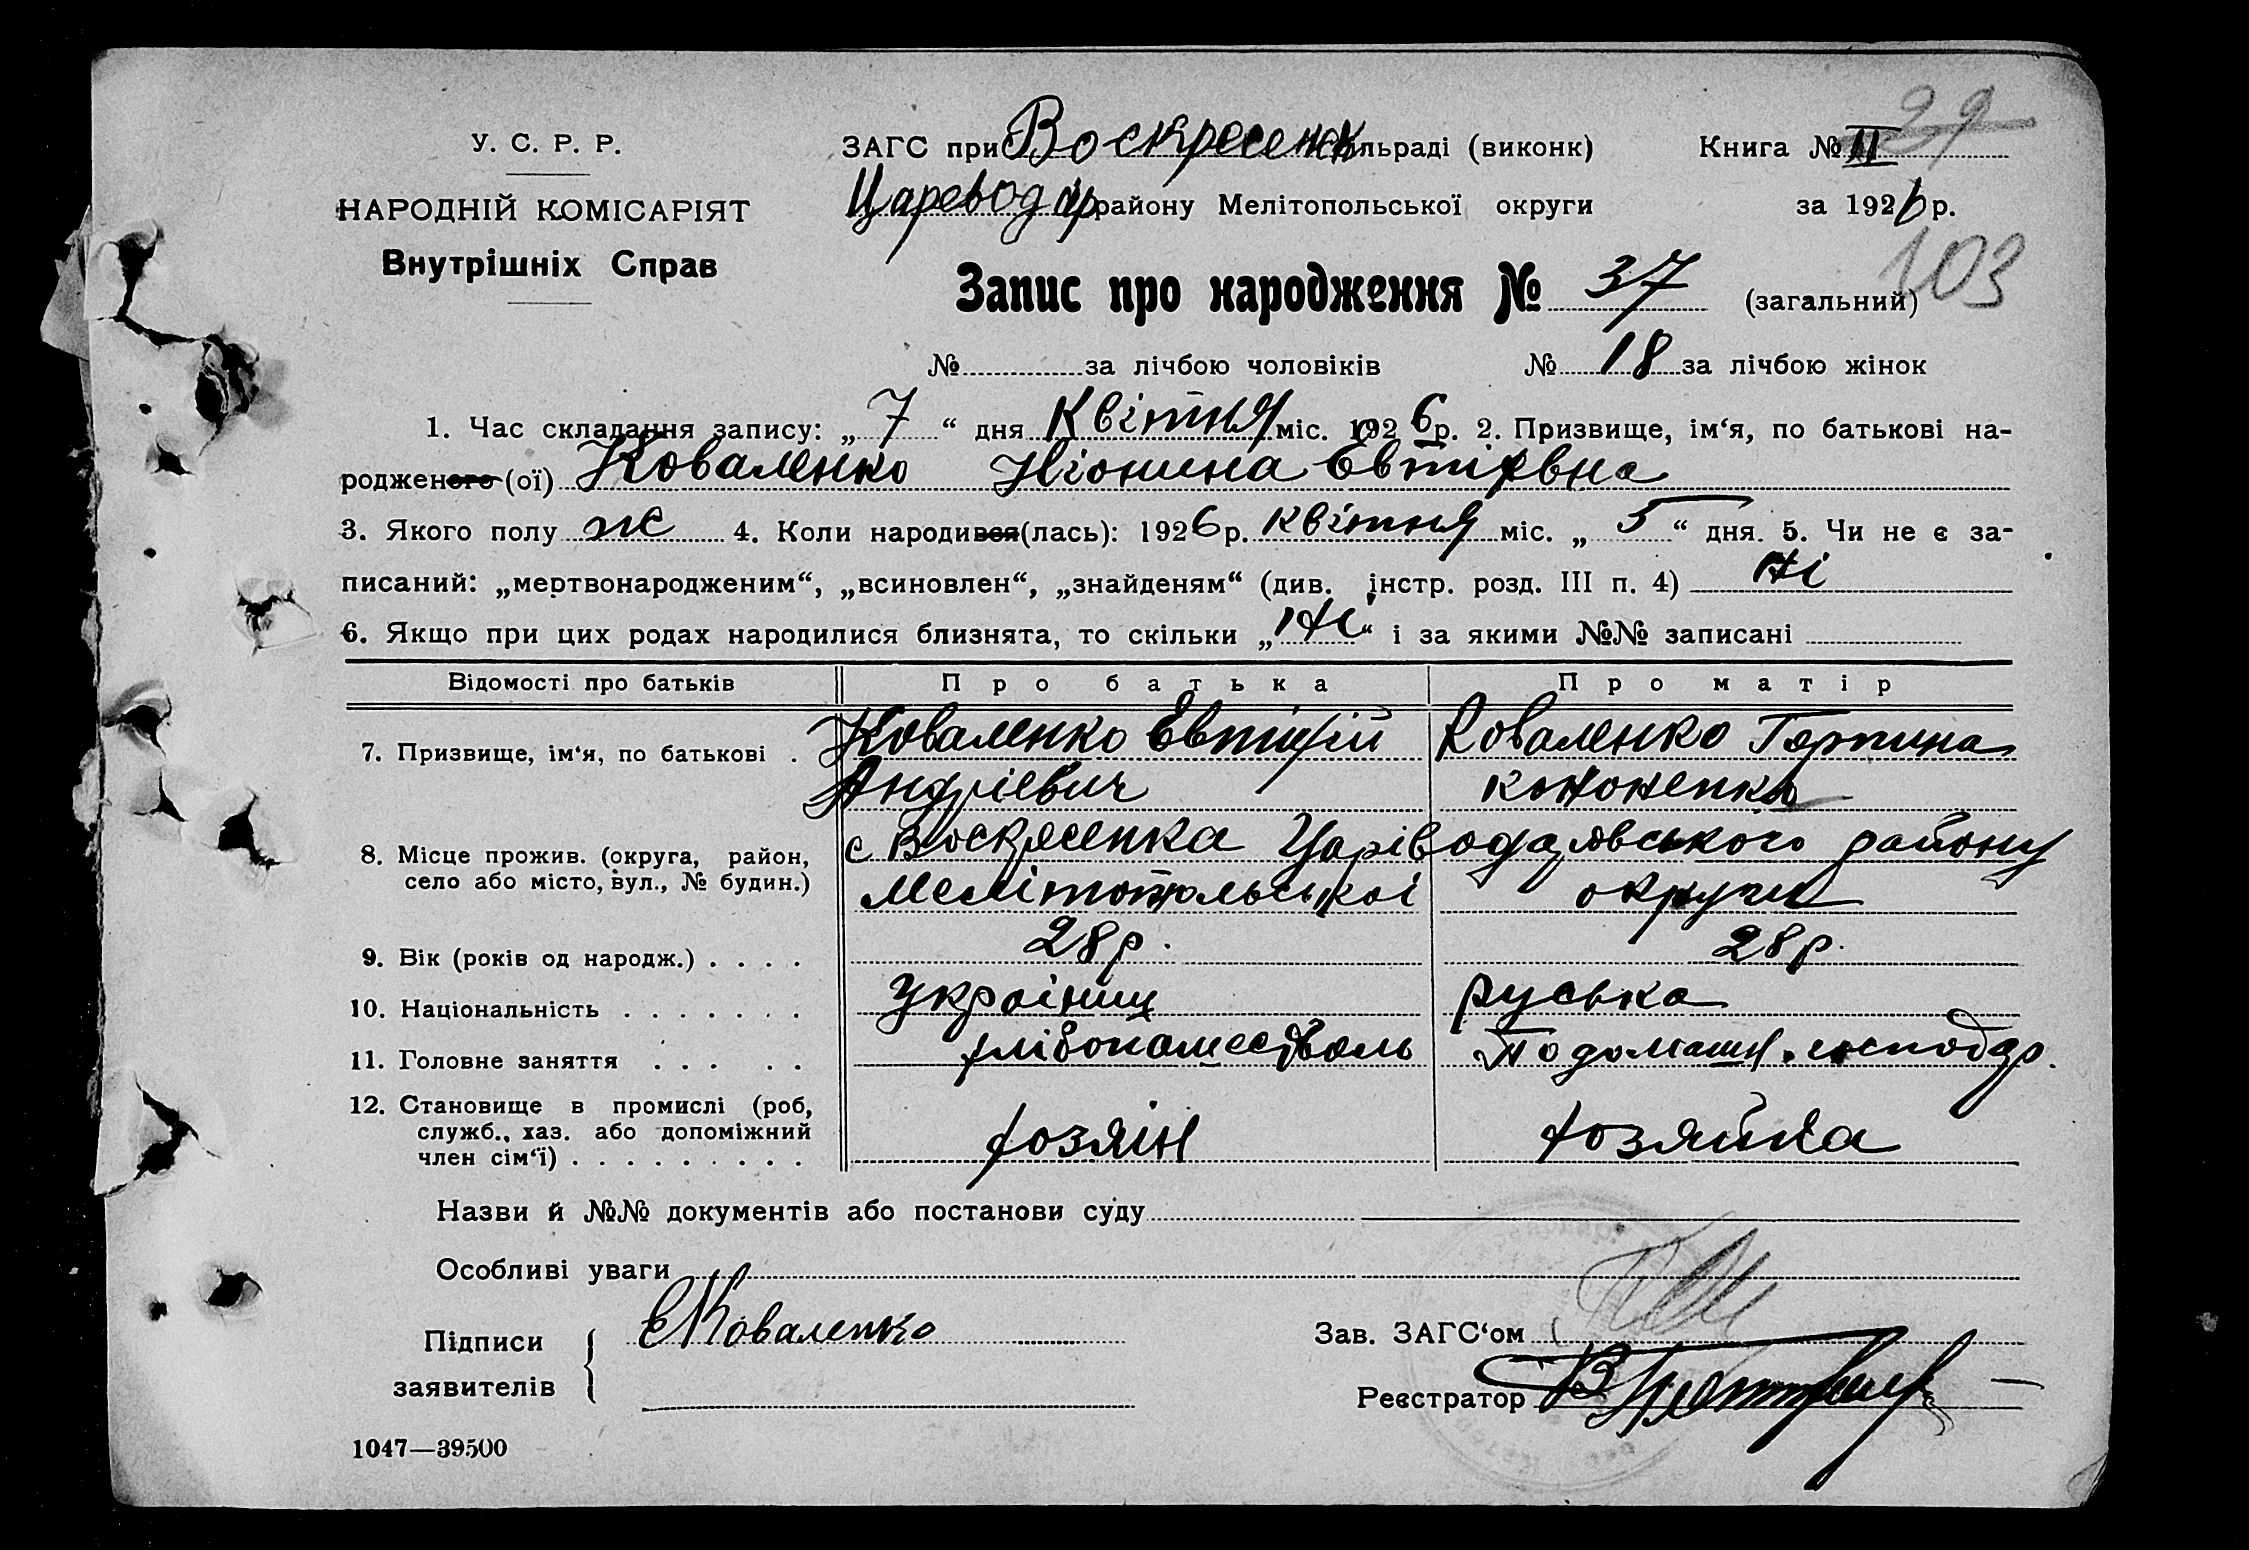 29
У. С. Р. Р.
ЗАГС при Воскресенск сільраді (виконк)
Книга № II
НАРОДНІЙ КОМІСАРІЯТ
Царевод др району Мелітопольської округи
за 1926 р.
Внутрішніх Справ
103
Запис про народження № 37 (загальний)
№ за лічбою чоловіків № 18 за лічбою жінок
1. Час складання запису: „7“ дня Квітня міс. 1926 р. 2. Призвище, ім‘я, по батькові на-
родженого (ої) Коваленко Євтіхівна
3. Якого полу ж 4. Коли народився(лась): 1926 р. квітня міс. „5“ дня. 5. Чи не є за-
писаний: „мертвонародженим“, „всиновлен“, „знайденям“ (див. інстр. розд. III п. 4) Ні
6. Якщо при цих родах народилися близнята, то скільки „Ні“ і за якими №№ записані
Відомості про батьків Про батька Про матір
7. Призвище, ім‘я, по батькові . Коваленко Євтіхій Коваленко Горпина
Андрієвич
8. Місце прожив. (округа, район, с Воскресенка Царівододаровського району
село або місто, вул., № будин.) Мелітопольської округи
9. Вік (років од народж.) . . . . 28 р. 28 р.
10. Національність . . . . . . . Українец руська
11. Головне заняття . . . . . По домашн. господар.
12. Становище в промислі (роб,
служб., хаз. або допоміжний хозяін хозяйка
член сім‘ї) . . . . . . . . .
Назви й №№ документів або постанови суду
Особливі уваги
Підписи Є Коваленко
заявителів
Зав. ЗАГС‘ом
Реєстратор
1047—39500